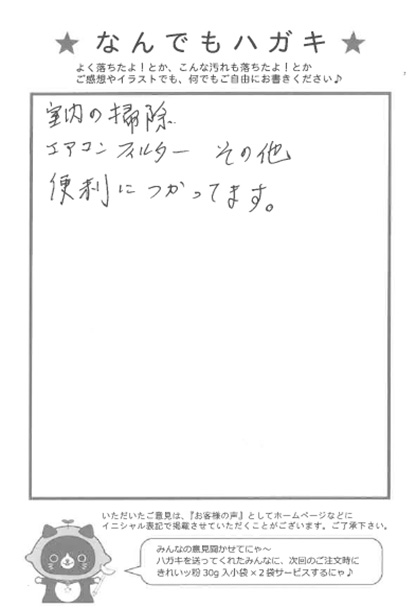 ★ なんでもハガキ ★
よく落ちたよ！とか、こんな汚れも落ちたよ！とか
ご感想やイラストでも、何でもご自由にお書きください♪
室内の掃除
エアコンフィルター その他
便利につかってます。
いただいたご意見は、『お客様の声』としてホームページなどに
イニシャル表記で掲載させていただくことがございます。ご了承下さい。
みんなの意見聞かせてにゃ〜
ハガキを送ってくれたみんなに、次回のご注文時に
きれいッ粉 30g 入小袋×２袋サービスするにゃ♪